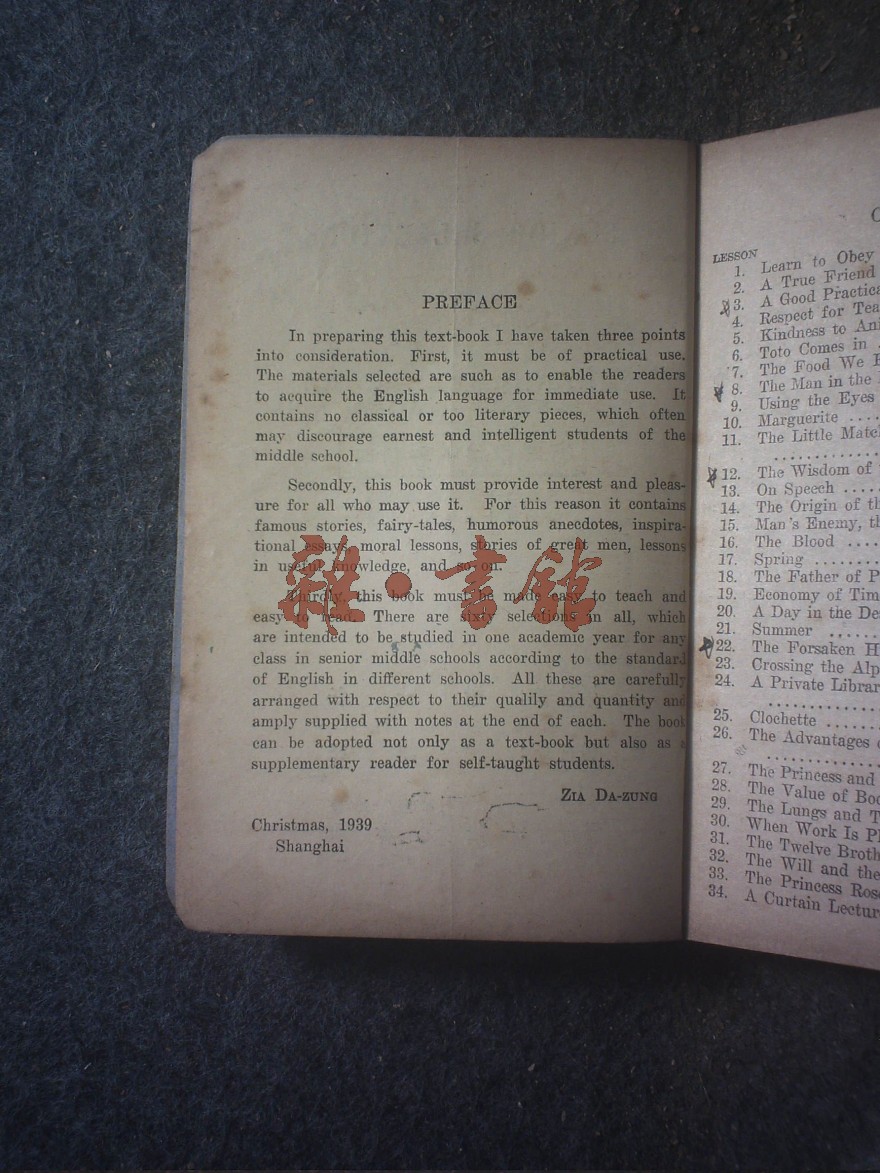 PREFACE
In preparing this text-book I have taken three points
into consideration. First, it must be of practical use.
The materials selected are such as to enable the readers
to acquire the English language for immediate use. It
contains no classical or too literary pieces, which often
may discourage earnest and intelligent students of the
middle school.
Secondly, this book must provide interest and pleas-
ure for all who may use it. For this reason it contains
famous stories, fairy-tales, humorous anecdotes, inspira-
tional essays, moral lessons, stories of great men, lessons
in useful knowledge, and so on.
Thirdly, this book must be made easy to teach and
easy to read. There are sixty selections in all, which
are intended to be studied in one academic year for any
class in senior middle schools according to the standard
of English in different schools. All these are carefully
arranged with respect to their qualily and quantity and
amply supplied with notes at the end of each. The book
can be adopted not only as a text-book but also as a
supplementary reader for self-taught students.
ZIA DA-ZUNG
Christmas, 1939
Shanghai
雜·書館
LESSON
1. Learn to Obey
2. A True Friend
3. A Good
4. Respect for
5. Kindness to
6. Toto Comes in
7. The Food We
8. The Man in the
9. Using the Eyes
10. Marguerite ....
11. The Little
..............
12. The Wisdom of
13. On Speech .....
14. The Origin of
15. Man's Enemy,
16. The Blood ....
17. Spring .........
18. The Father of
19. Economy of
20. A Day in the
21. Summer ......
22. The Forsaken
23. Crossing the
24. A Private
..............
25. Clochette ........
26. The Advantages
..............
27. The Princess and
28. The Value of
29. The Lungs and
30. When Work Is
31. The Twelve
32. The Will and the
33. The Princess
34. A Curtain